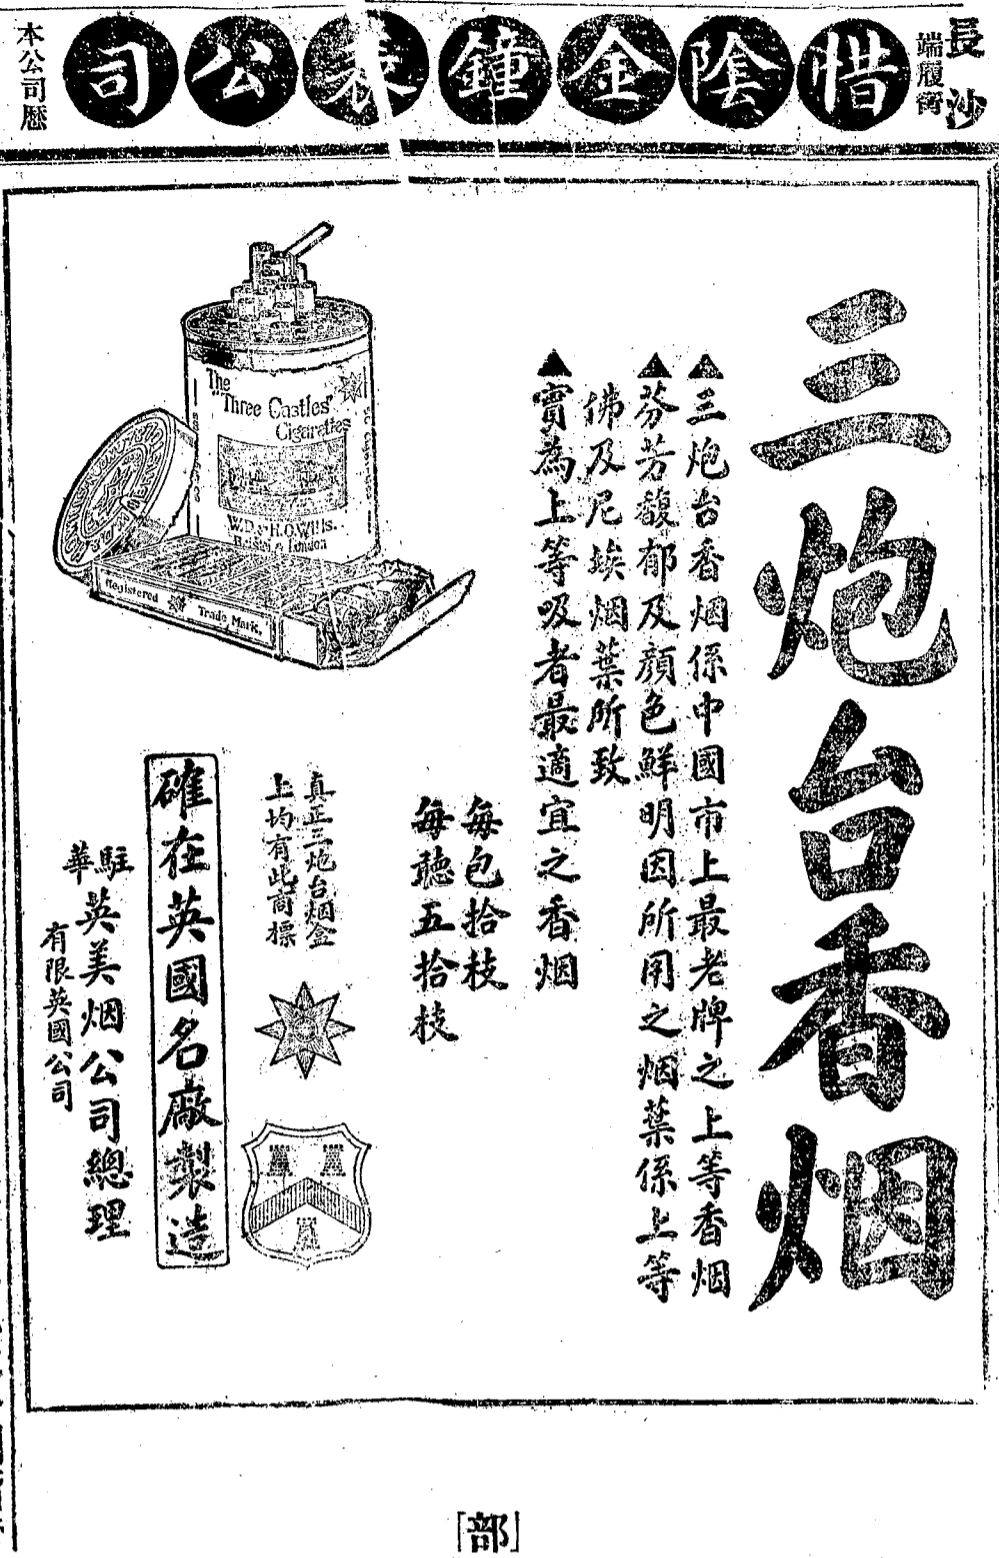 長沙
端履街
惜陰金鐘表公司
本公司歷
三炮台香烟
▲三炮台香烟係中國市上最老牌之上等香烟
▲芬芳馥郁及顏色鮮明因所用之烟葉係上等
佛及尼埃烟葉所致
▲實為上等吸者最適宜之香烟
每包拾枝
每聽五拾枝
The
"Three Castles"
Cigarettes
W.D. & H.O. Wills.
Bristol & London
Registered Trade Mark.
真正三炮台烟盒
上均有此商標
確在英國名廠製造
駐華英美烟公司總理
有限英國公司
[部]